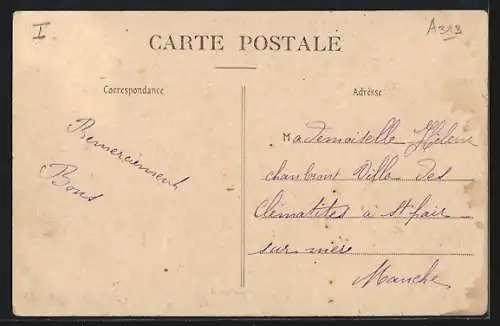 I
A313
CARTE POSTALE
Correspondance
Adresse
Remerciement
Bons
Mademoiselle Hélène
chanbront Ville des
Clématites à St pair
sur mère
Manche